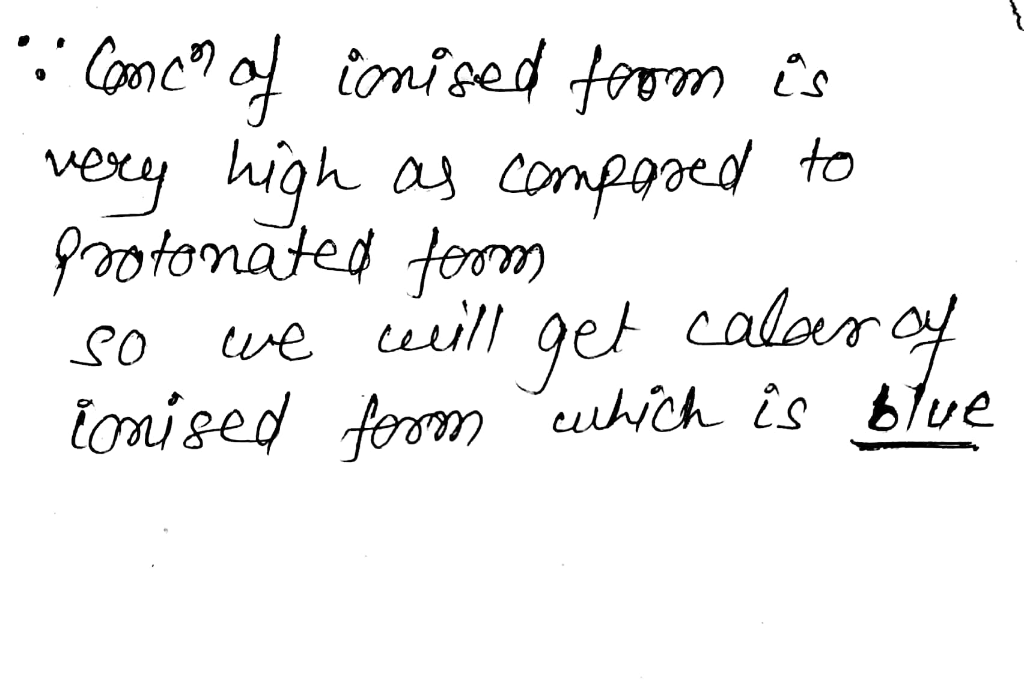 ∵ Concⁿ of ionised form is
very high as compared to
protonated form
so we will get color of
ionised form which is blue